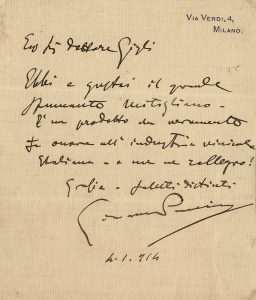 Via Verdi, 4,
Milano.
dottore Gigli
Ebbi e gustai il grande
spumante Mitigliano -
È un prodotto che veramente
fa onore all'industria vinicola
Italiana - e me ne rallegro!
Grazie e saluti distinti
Giacomo Puccini
4.1.914